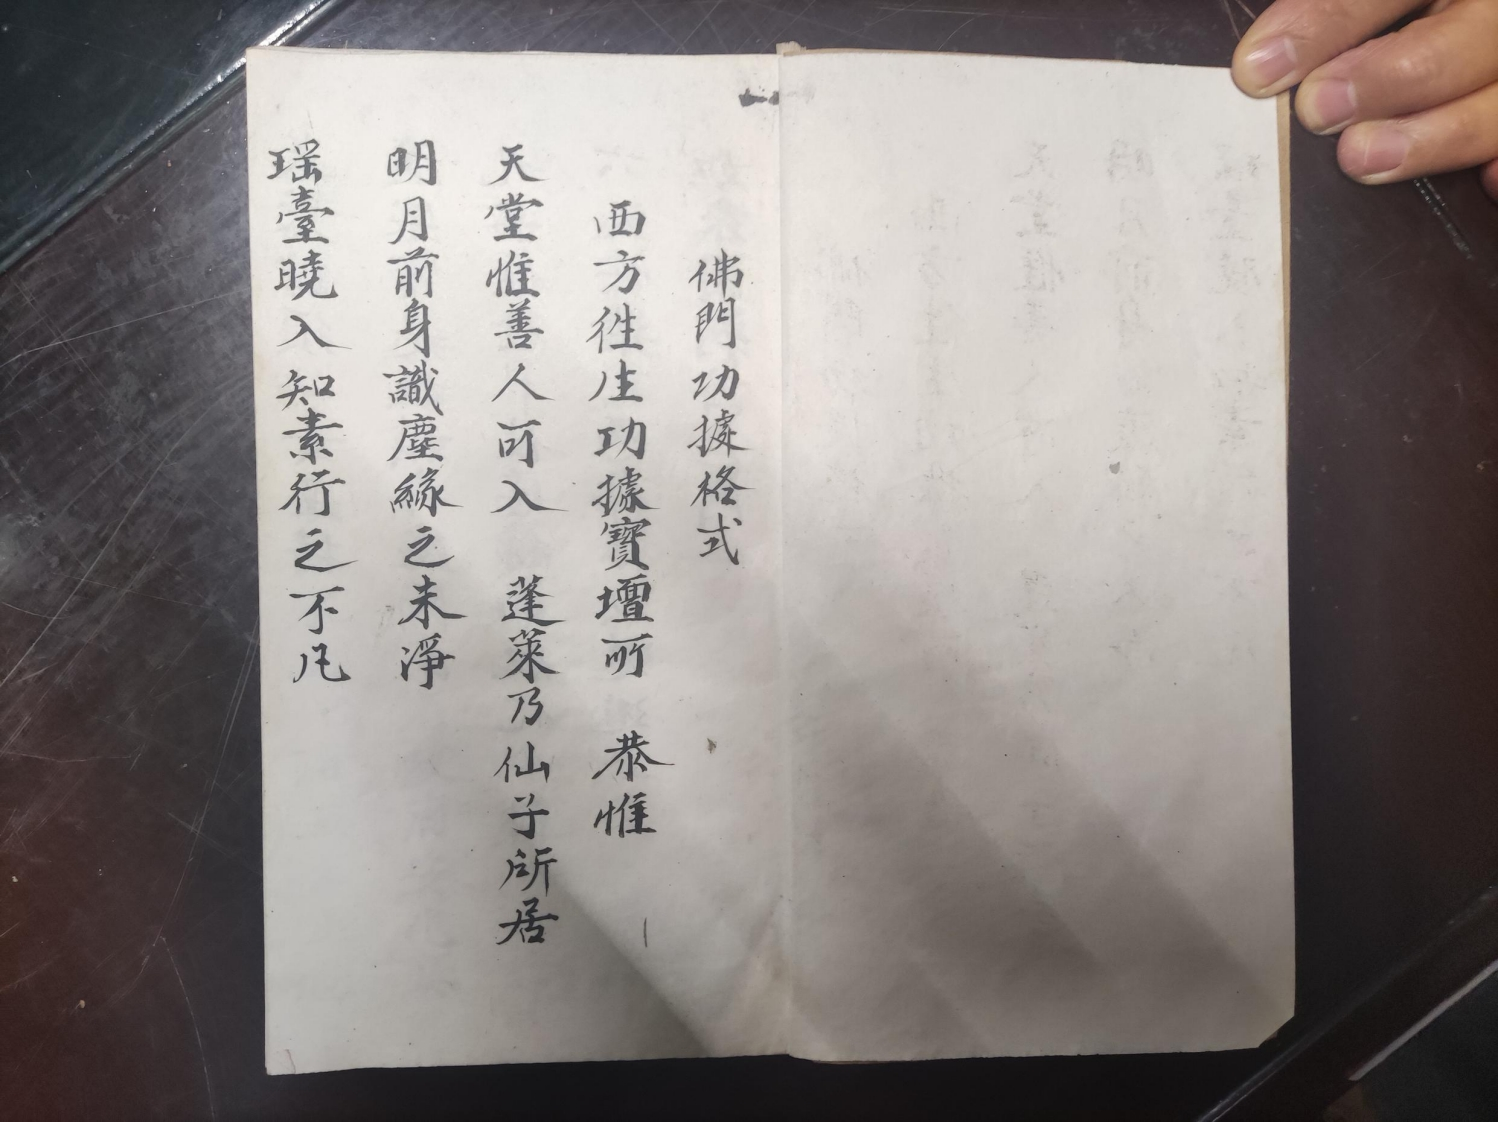 佛門功據格式
西方徃生功據寶壇所　恭惟
天堂惟善人可入　蓬萊乃仙子所居
明月前身識塵緣之未淨
瑶臺曉入知素行之不凡